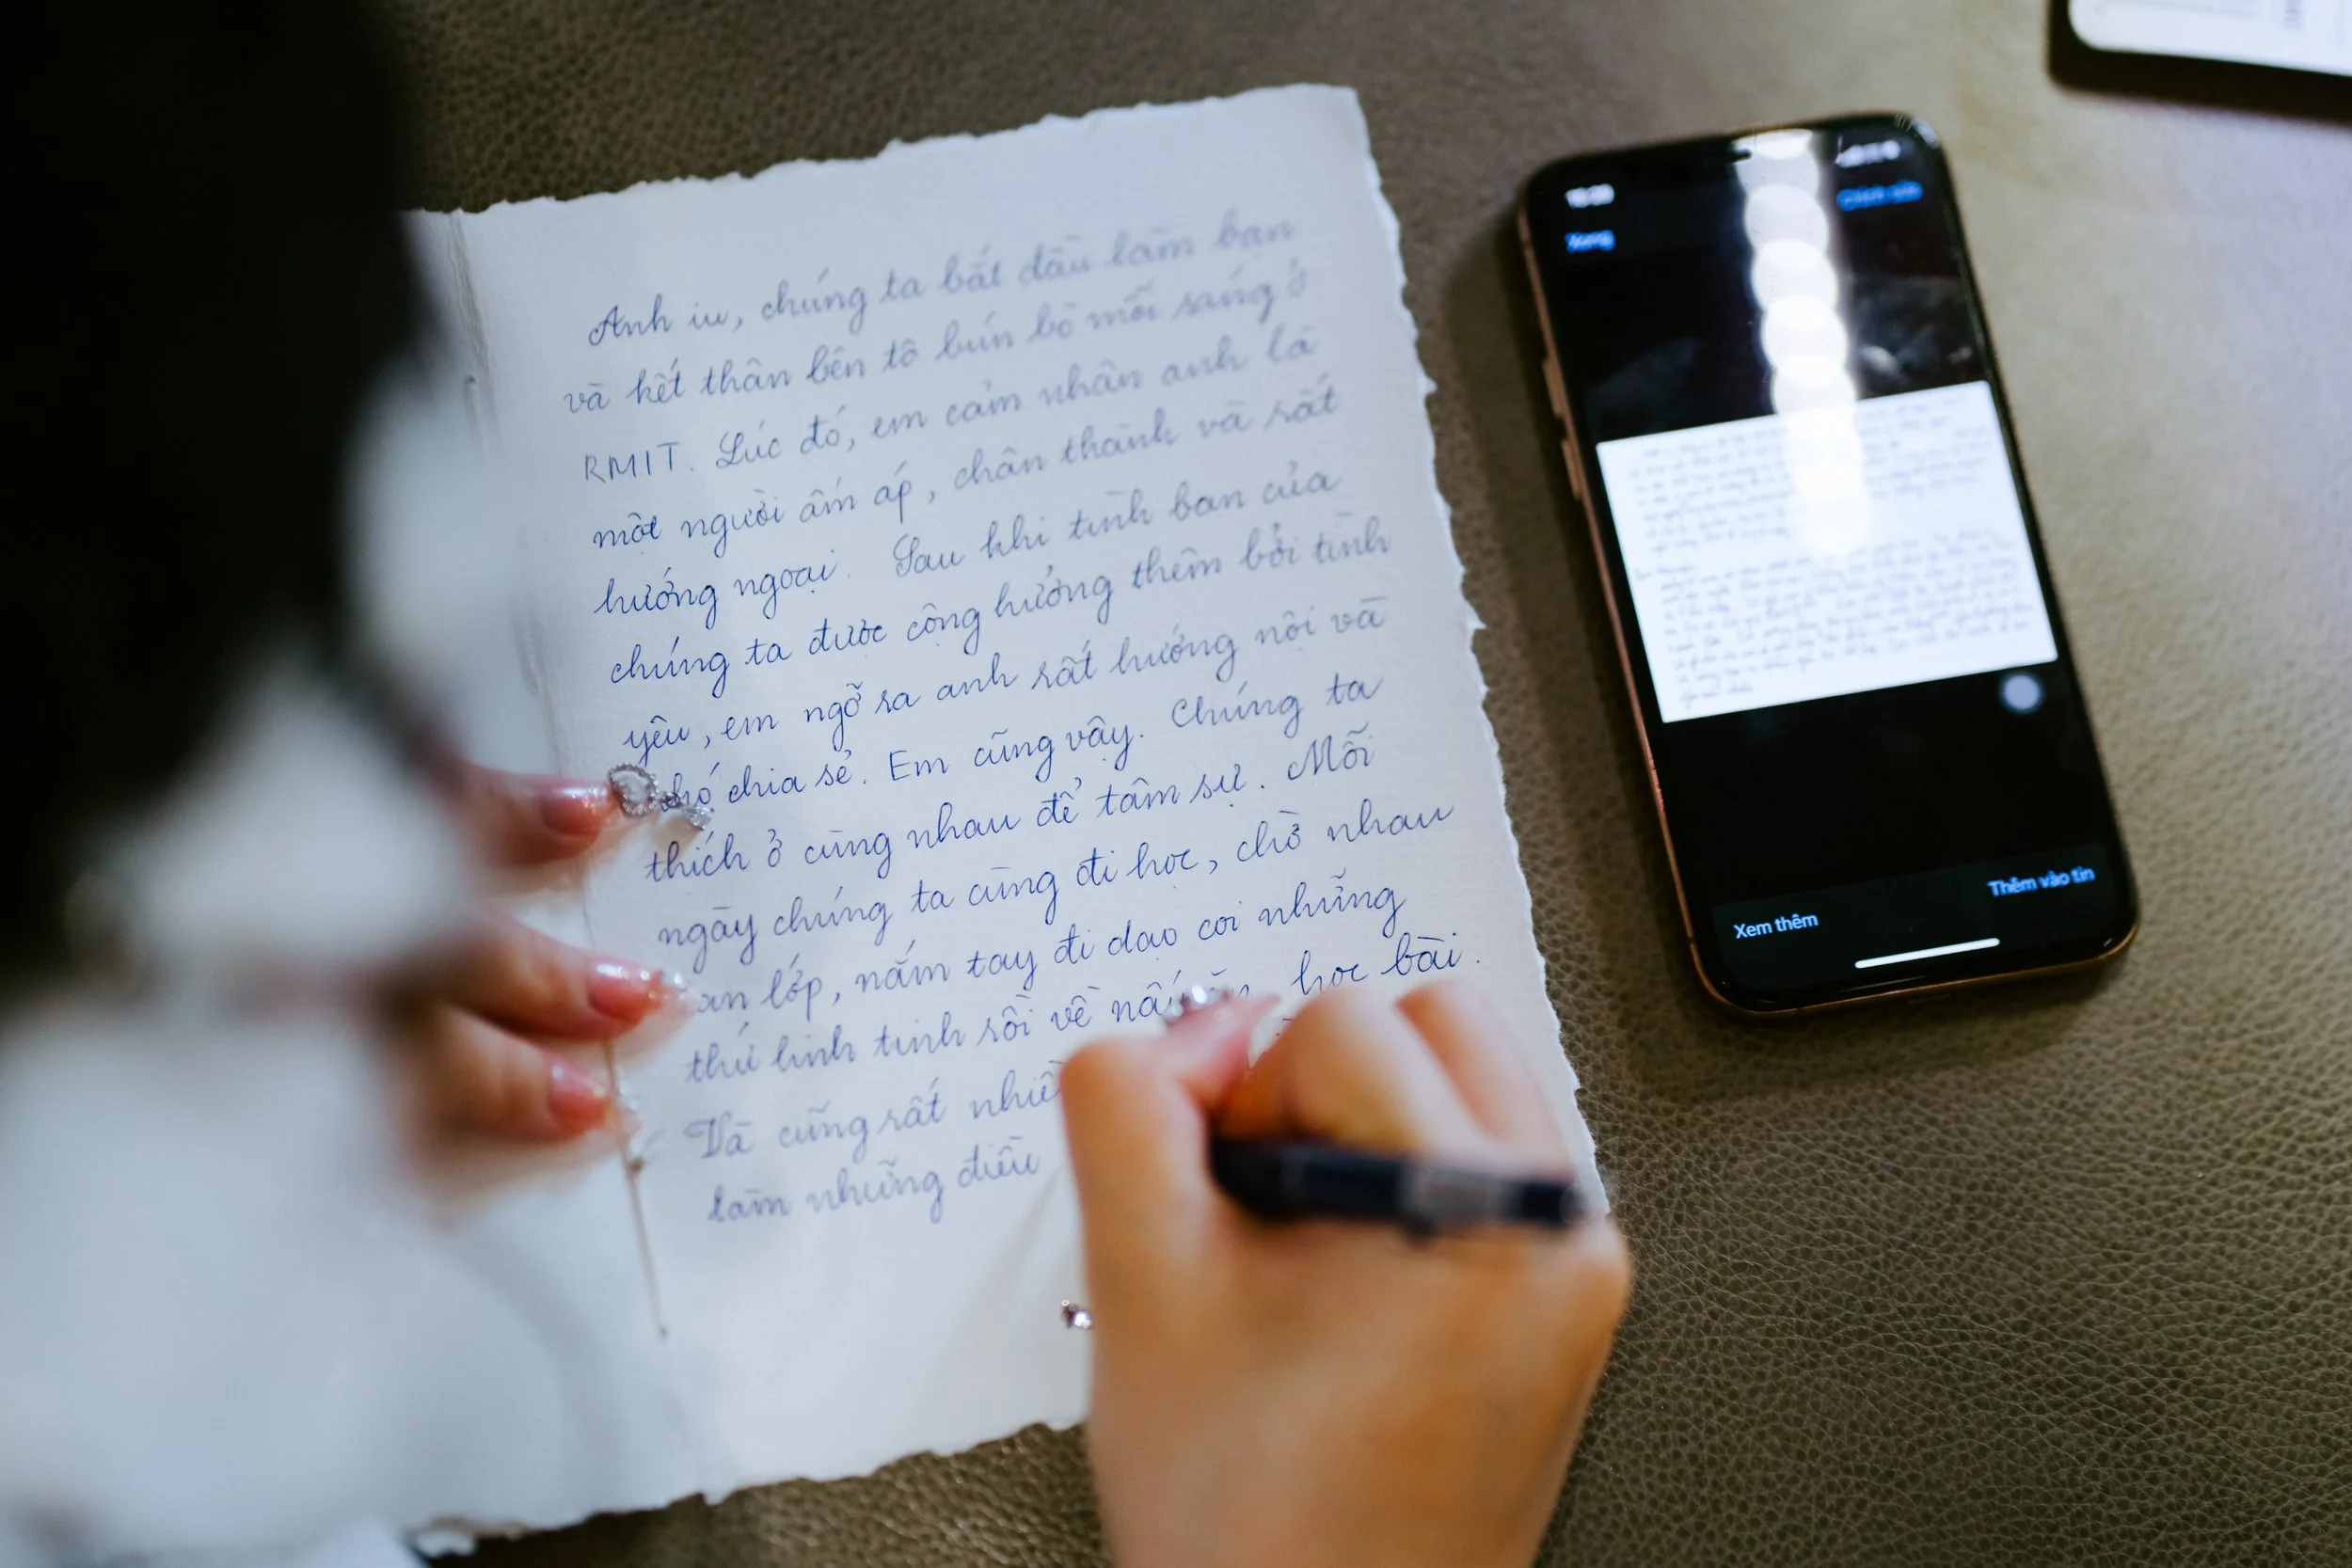 Anh iu, chúng ta bắt đầu làm bạn
và kết thân bên tô bún bò mỗi sáng ở
RMIT. Lúc đó, em cảm nhân anh là
một người ấm áp, chân thành và rất
hướng ngoại. Sau khi tình bạn của
chúng ta được cộng hưởng thêm bởi tình
yêu, em ngỡ ra anh rất hướng nội và
khó chia sẻ. Em cũng vậy. Chúng ta
thích ở cùng nhau để tâm sự. Mỗi
ngày chúng ta cùng đi học, chờ nhau
tan lớp, nắm tay đi dạo coi những
thứ linh tinh rồi về nấu ăn, học bài.
Và cũng rất nhiề
làm những điều
Xong
Chỉnh sửa
Xem thêm
Thêm vào tin